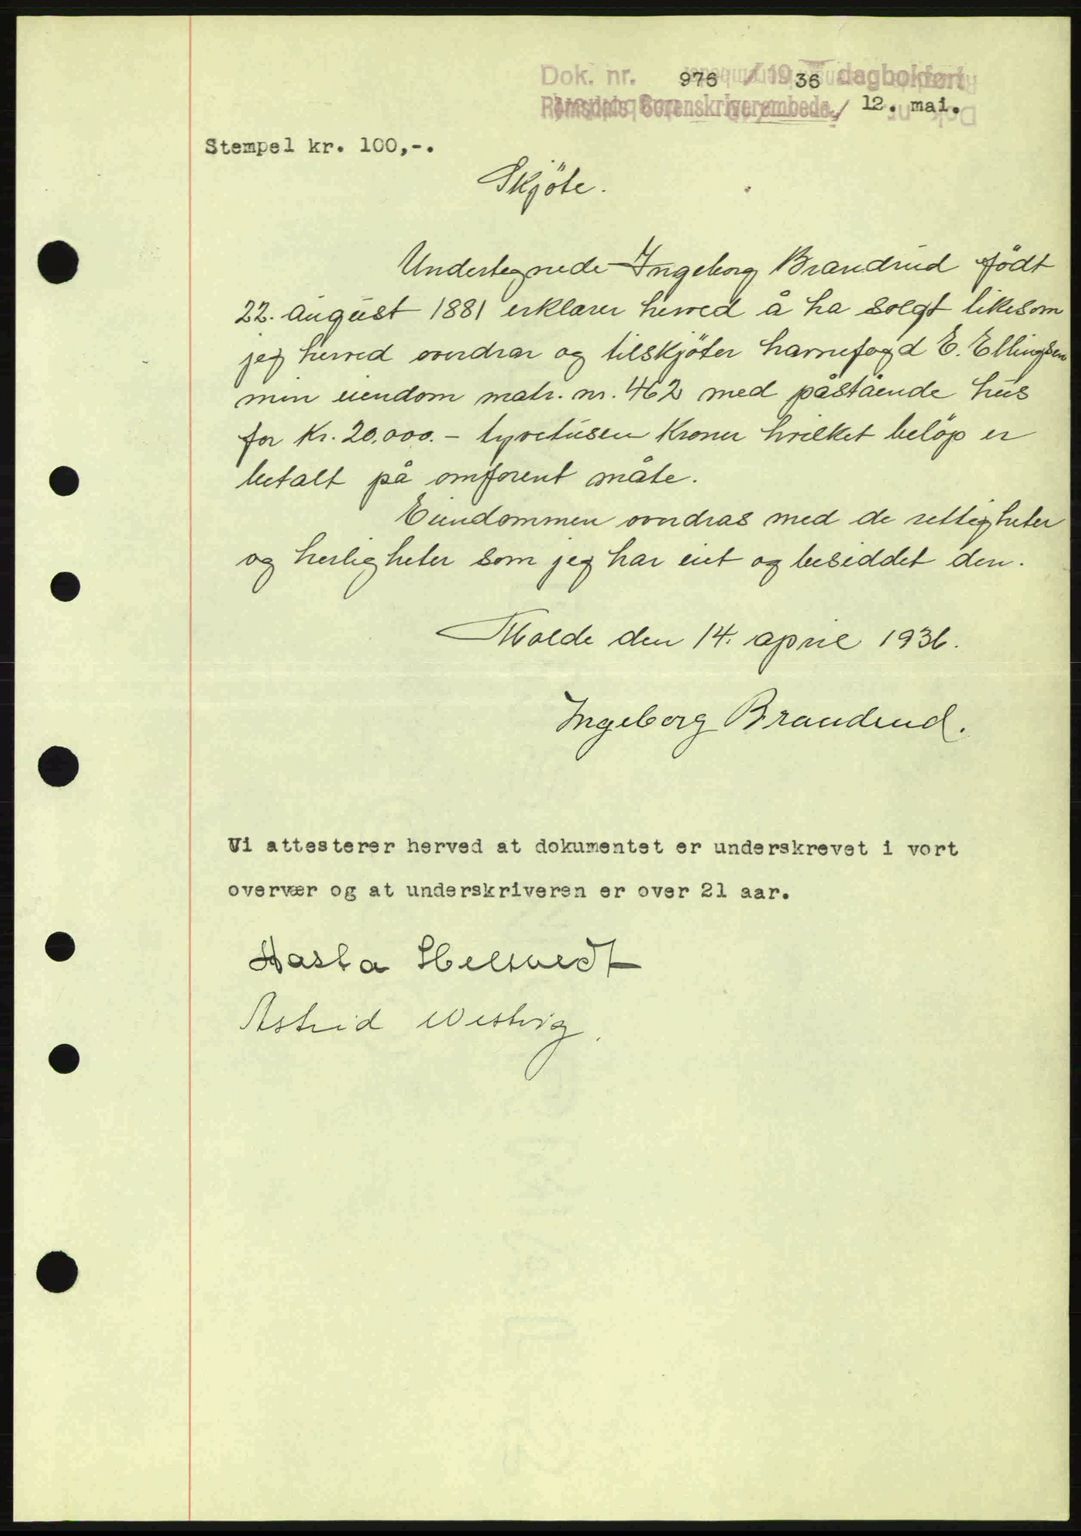 Dok. nr. 976 / 1936 dagbokført
Romsdals Sorenskriverembede / 12. mai.
Stempel kr. 100,-.
Skjöte.
Undertegnede Ingeborg Brandrud födt
22. august 1881 erklærer herved å ha solgt likesom
jeg herved overdrar og tilskjöter havnefogd E. Ellingsen
min eiendom matr. nr. 462 med påstående hus
for Kr. 20.000.- tyvetusen Kroner hvilket belöp er
betalt på omforent måte.
Eiendommen overdras med de rettigheter
og herligheter som jeg har eiet og besiddet den.
Molde den 14. april 1936.
Ingeborg Brandrud.
Vi attesterer herved at dokumentet er underskrevet i vort
overvær og at underskriveren er over 21 aar.
Aasta
Astrid Westvig.